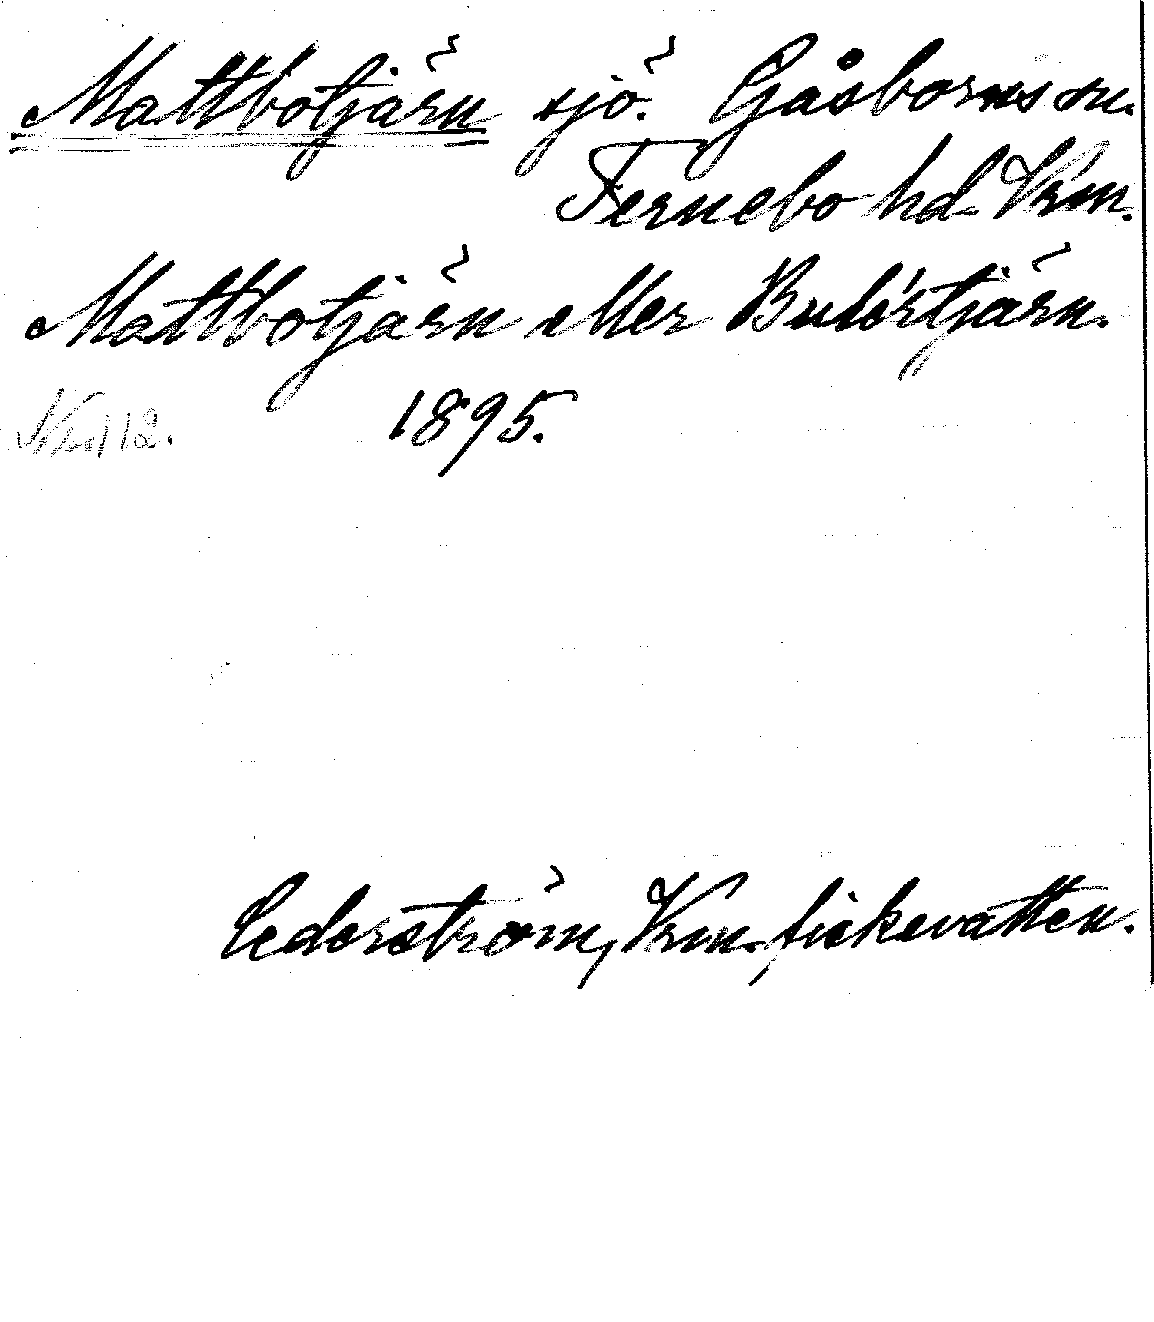 Mattbotjärn sjö. Gåsborns sn.
Fernebo hd. Vrm.
Mattbotjärn eller Butórtjärn.
1895.
Cederström, Vrm. fiskevatten.